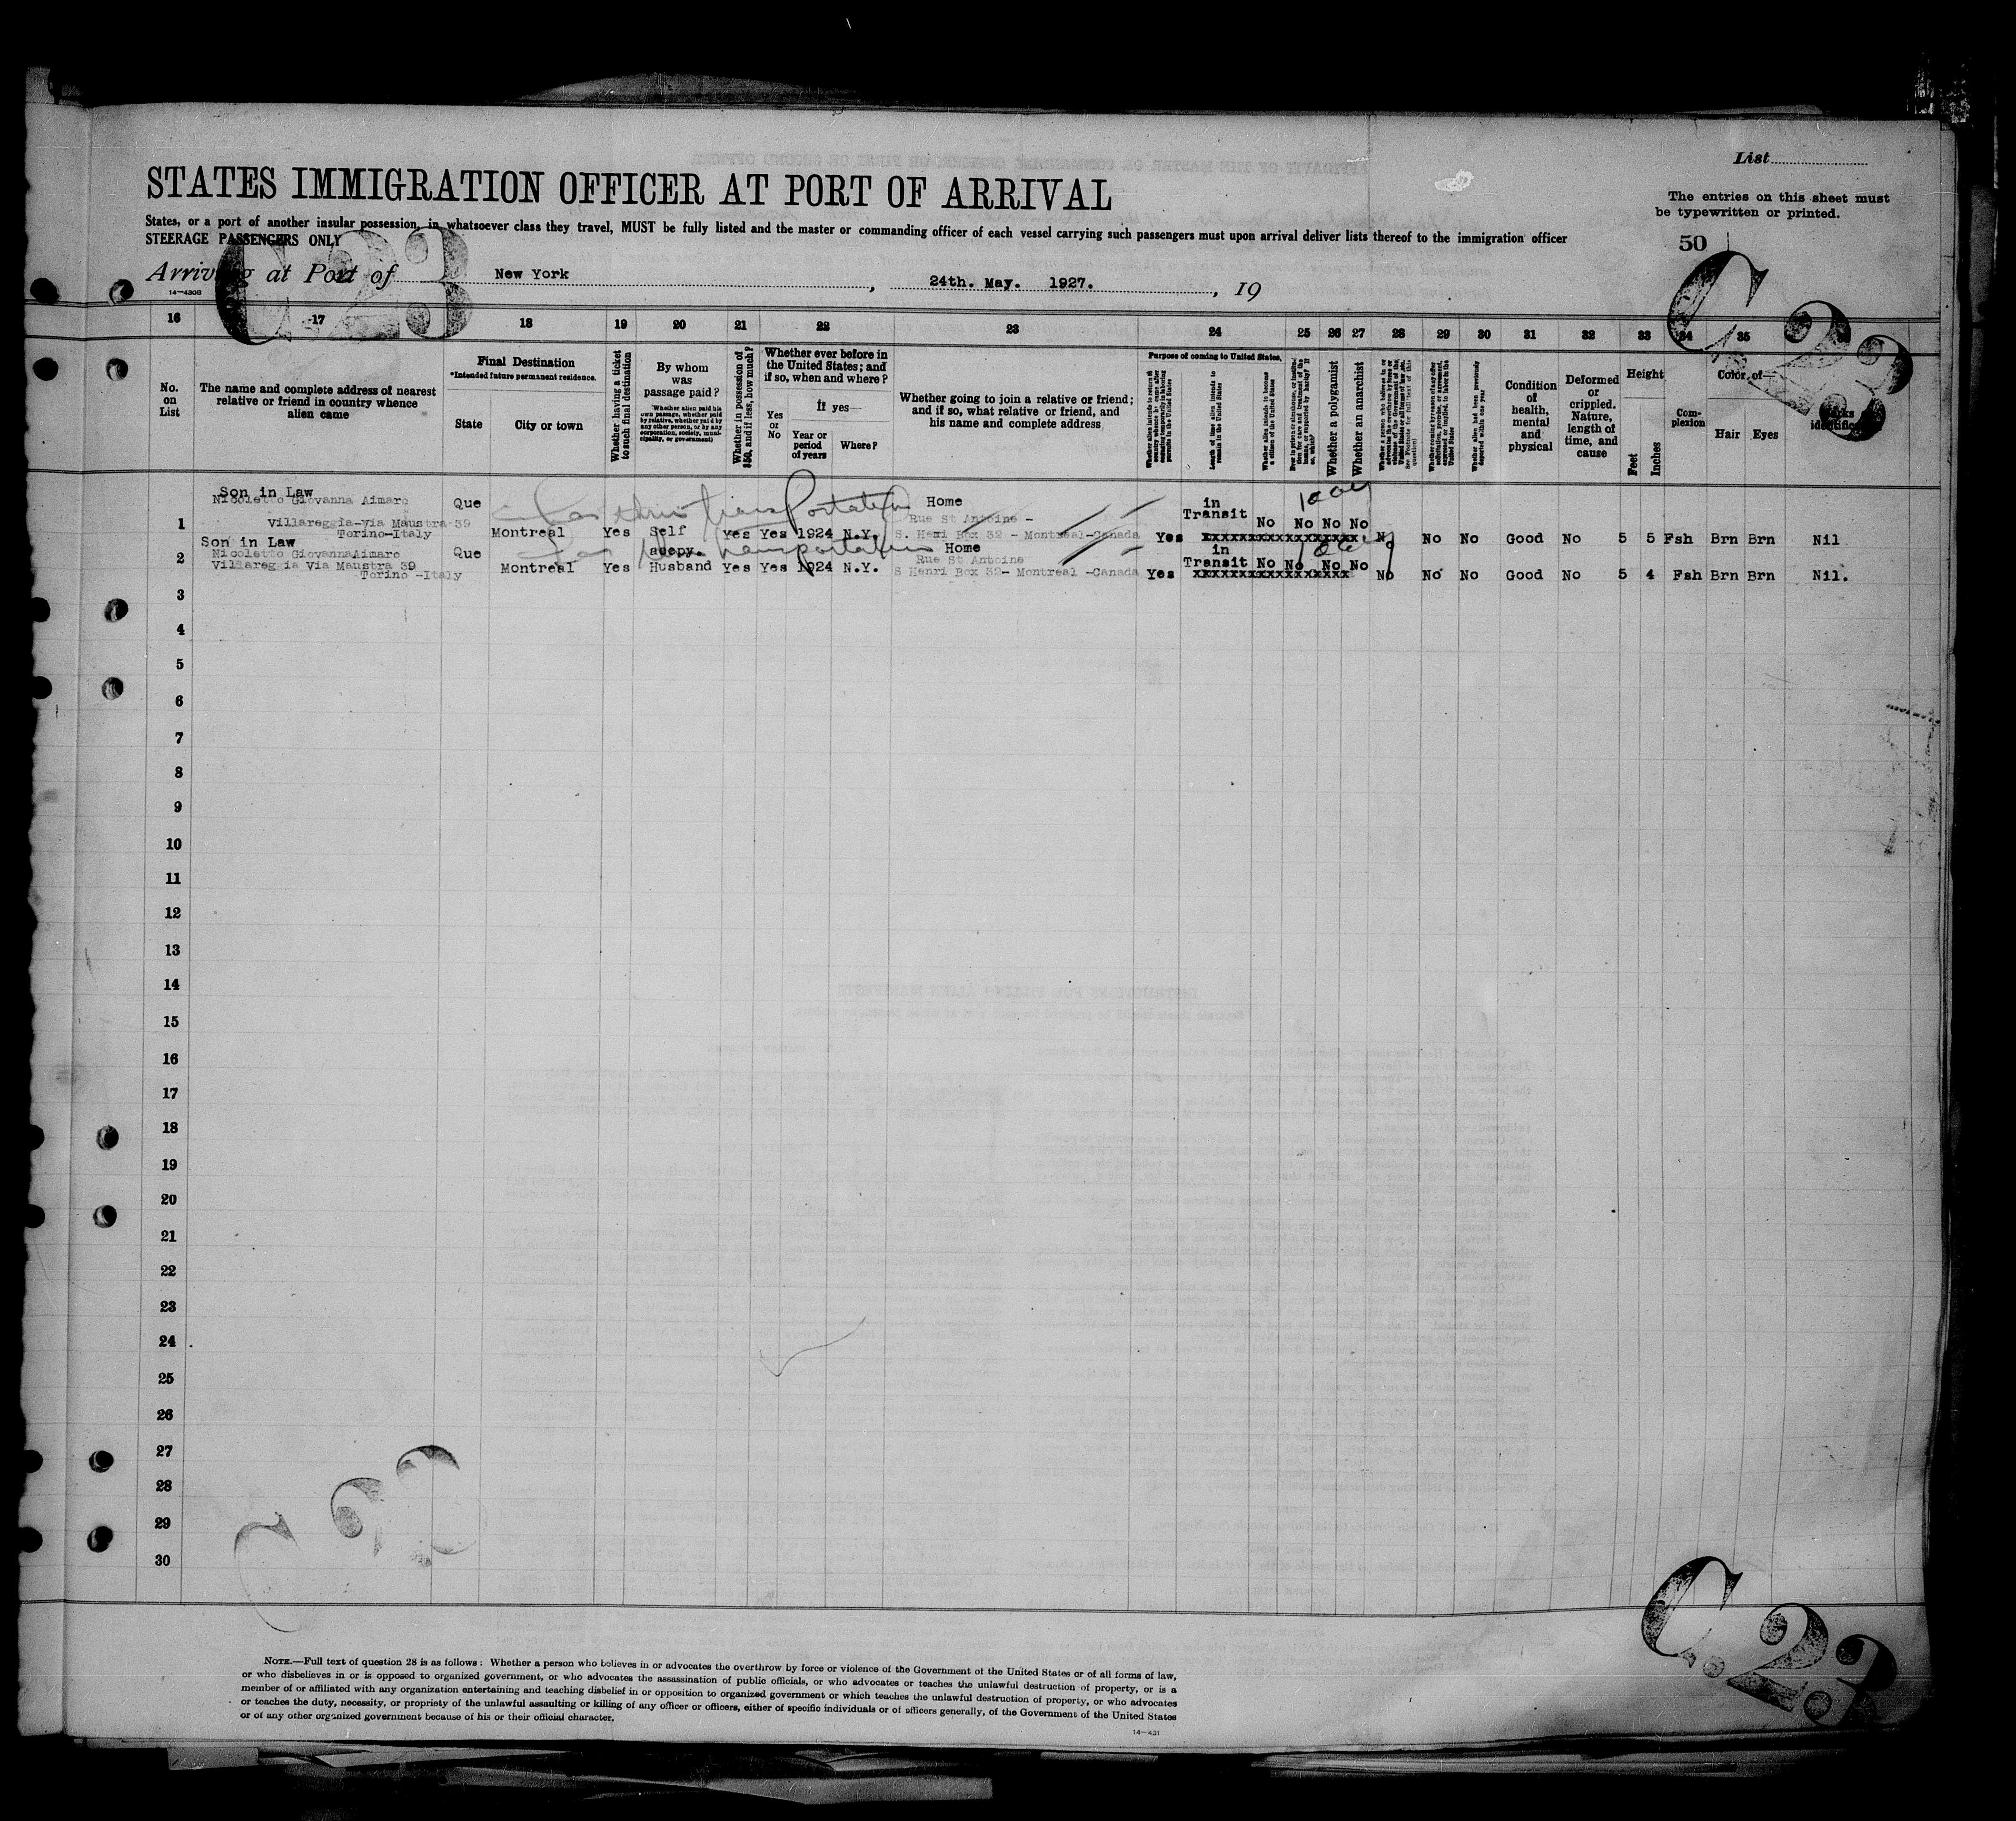 List
STATES IMMIGRATION OFFICER AT PORT OF ARRIVAL
The entries on this sheet must
be typewritten or printed.
States, or a port of another insular possession, in whatsoever class they travel, MUST be fully listed and the master or commanding officer of each vessel carrying such passengers must upon arrival deliver lists thereof to the immigration officer
STEERAGE PASSENGERS ONLY
50
C 23
C. 23
Arriving at Port of New York, 24th. May. 1927., 19
14—4308
16 17 18 19 20 21 22 23 24 25 26 27 28 29 30 31 32 33 34 35
No.
on
List
The name and complete address of nearest
relative or friend in country whence
alien came
Final Destination
*Intended future permanent residence.
State
City or town
Whether having a ticket
to such final destination
By whom
was
passage paid?
Whether alien paid his
own passage, whether paid
by relative, whether paid by
any other person, or by any
corporation, society, muni-
cipality, or government
Whether in possession of
$50, and if less, how much?
Whether ever before in
the United States; and
if so, when and where?
Yes
or
No
If yes—
Year or
period
of years
Where?
Whether going to join a relative or friend;
and if so, what relative or friend, and
his name and complete address
Purpose of coming to United States.
Length of time alien intends to
remain in the United States
Whether alien intends to become
a citizen of the United States
Whether a polygamist
Whether an anarchist
Whether alien had been previously
deported within one year
Condition
of
health,
mental
and
physical
Deformed
or
crippled.
Nature,
length of
time, and
cause
Height
Feet
Inches
Com-
plexion
Color of—
Hair
Eyes
Marks
identific
Son in Law
Nicoletto Giovanna Aimaro Que Home in
Villareggia-Via Maustra 39 Rue St Antoine - Transit
1 Torino-Italy Montreal Yes Self Yes Yes 1924 N.Y. S. Henri Box 32 - Montreal-Canada Yes xxxxxxxxxxxxxxxxxx No No No No No No No Good No 5 5 Fsh Brn Brn Nil
transportation
Son in Law
2 Nicoletto GiovannaAimaro Que Home in
Villareggia Via Maustra 39 Rue St Antoine Transit No No No No
Torino -Italy Montreal Yes Husband Yes Yes 1924 N.Y. S Henri Box 32- Montreal -Canada Yes xxxxxxxxxxxxxxxxxx No No No Good No 5 4 Fsh Brn Brn Nil.
transportation
3
4
5
6
7
8
9
10
11
12
13
14
15
16
17
18
19
20
21
22
23
24
25
26
27
28
29
30
C 23
C. 23
NOTE.—Full text of question 28 is as follows: Whether a person who believes in or advocates the overthrow by force or violence of the Government of the United States or of all forms of law,
or who disbelieves in or is opposed to organized government, or who advocates the assassination of public officials, or who advocates or teaches the unlawful destruction of property, or is a
member of or affiliated with any organization entertaining and teaching disbelief in or opposition to organized government or which teaches the unlawful destruction of property, or who advocates
or teaches the duty, necessity, or propriety of the unlawful assaulting or killing of any officer or officers, either of specific individuals or of officers generally, of the Government of the United States
or of any other organized government because of his or their official character.
14—431